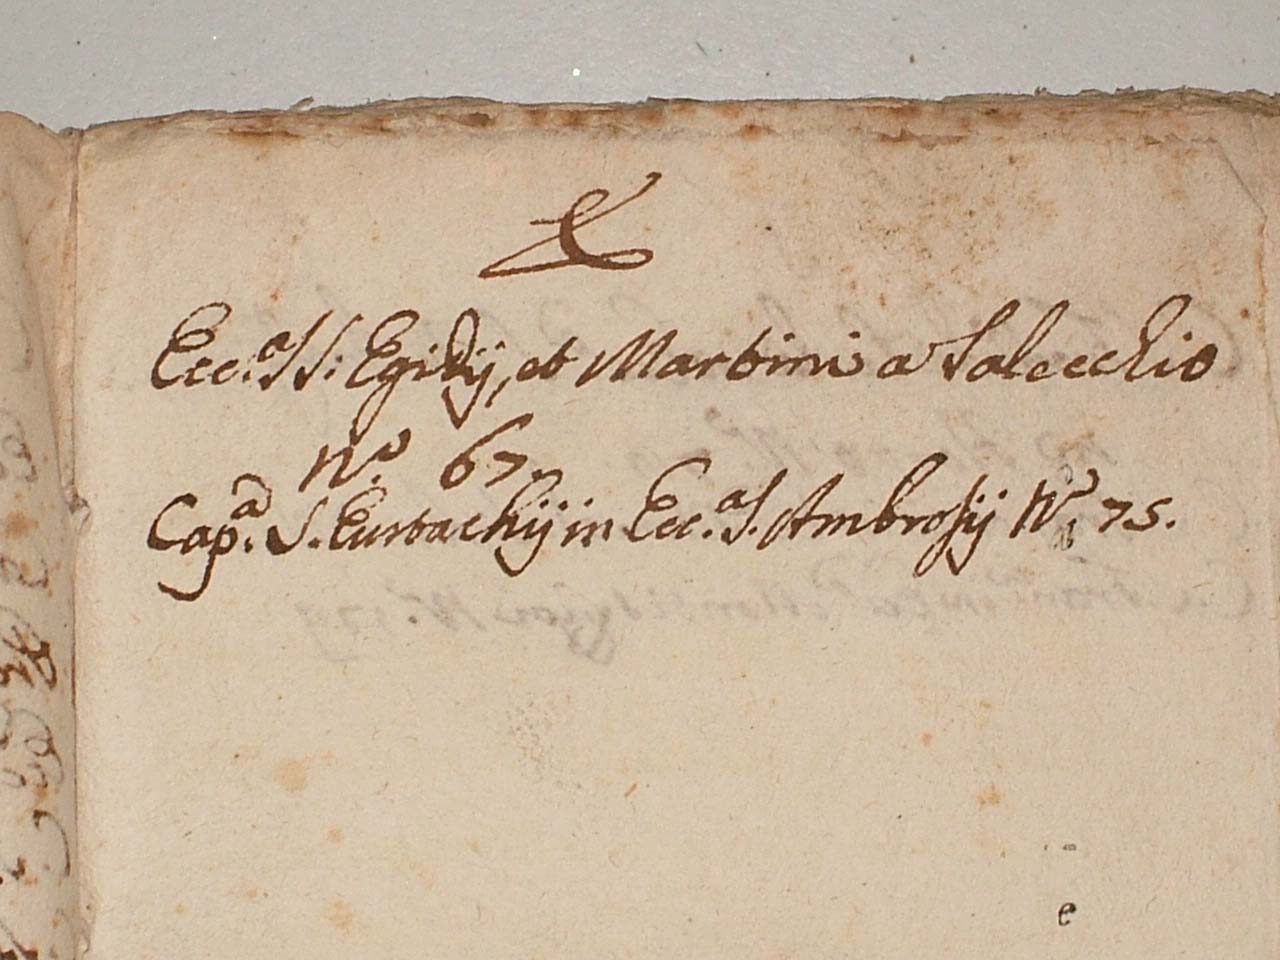 E
Ecc.ª SS: Egidij, et Martini a Salecchio
N.º 67.
Cap.ª S. Eustachij in Ecc.ª S. Ambrosij N.º 75.
e